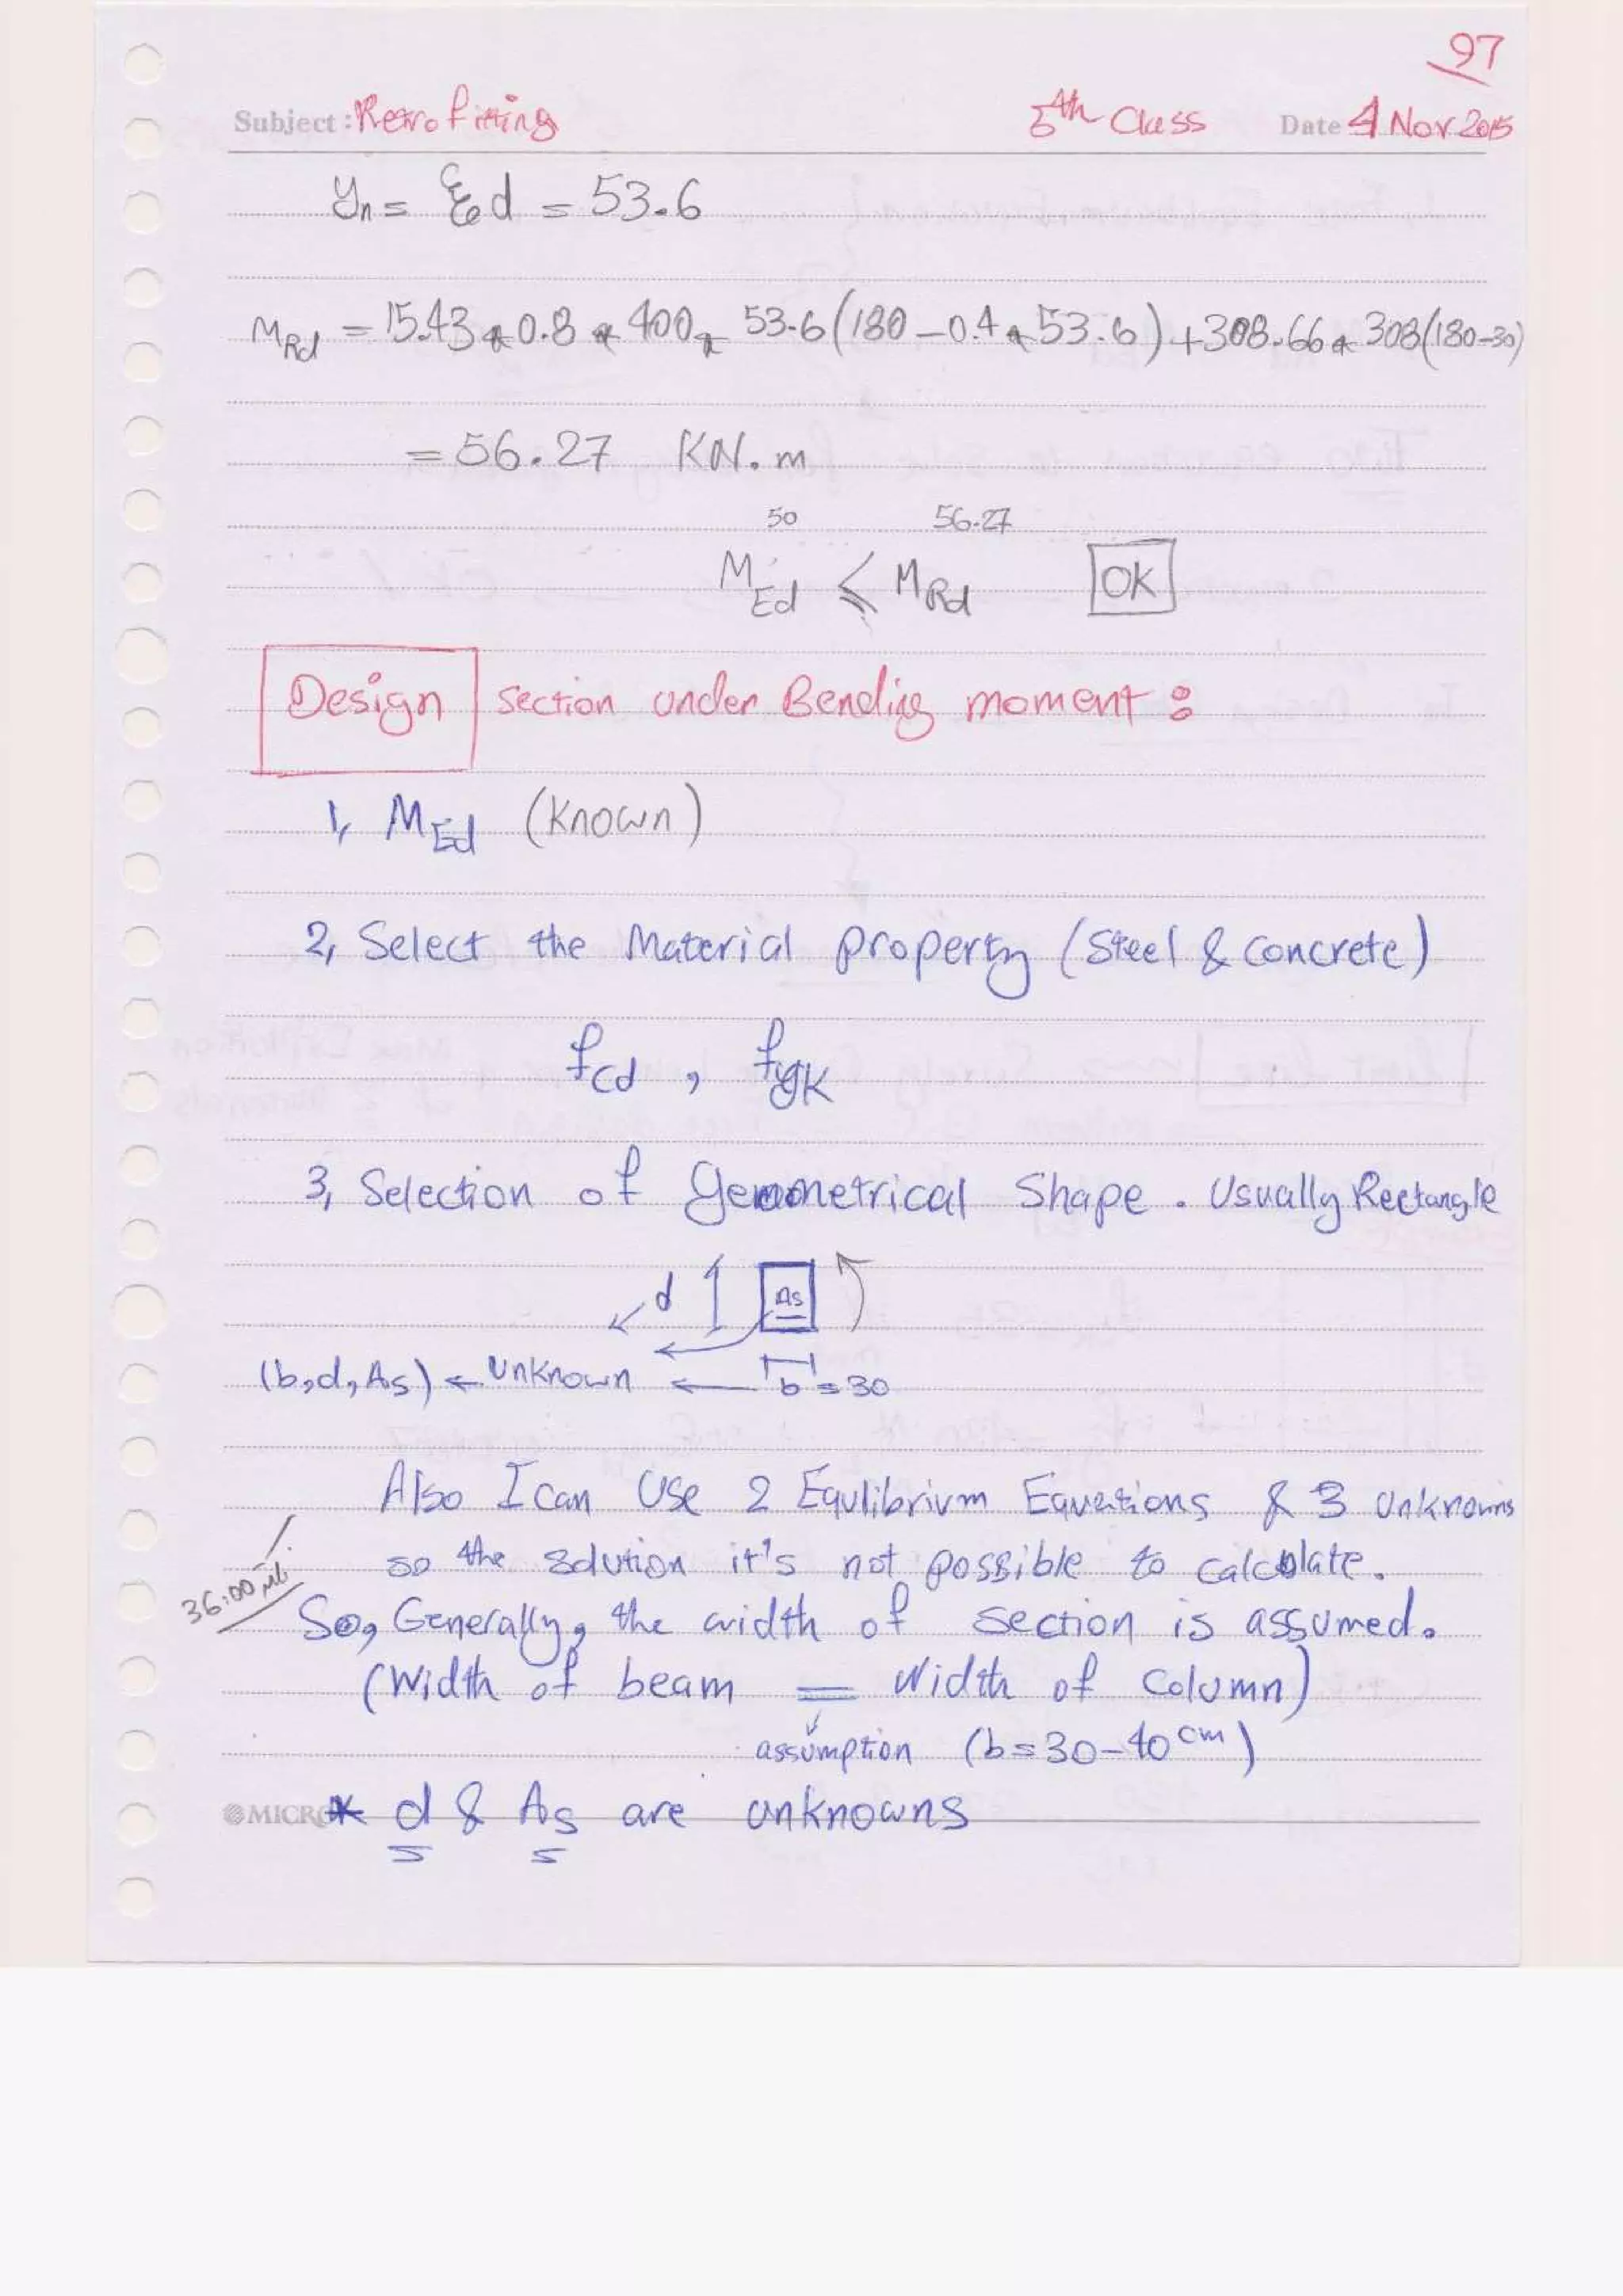 97
Subject: Retrofitting 5th Class Date 4 Nov 2015
yn = ξe d = 53.6
MRd = 15.43 * 0.8 * 400 * 53.6 (180 - 0.4 * 53.6) + 308.66 * 308 (180-30)
= 56.27 KN.m
50 56.27
MEd ⩽ MRd OK
Design section under Bending moment:
1, MEd (Known)
2, Select the Material property (Steel & concrete)
fcd , fyk
3, Selection of geometrical Shape. Usually Rectangle
d As
(b,d,As) ← Unknown ← b = 30
Also I can Use 2 Equlibrivm Equations & 3 unknowns
so the solution it's not possible to calculate.
36:00
So, Generally, the width of section is assumed.
(Width of beam = Width of Column)
assumption (b = 30-40 cm)
MICRO * d & As are unknowns